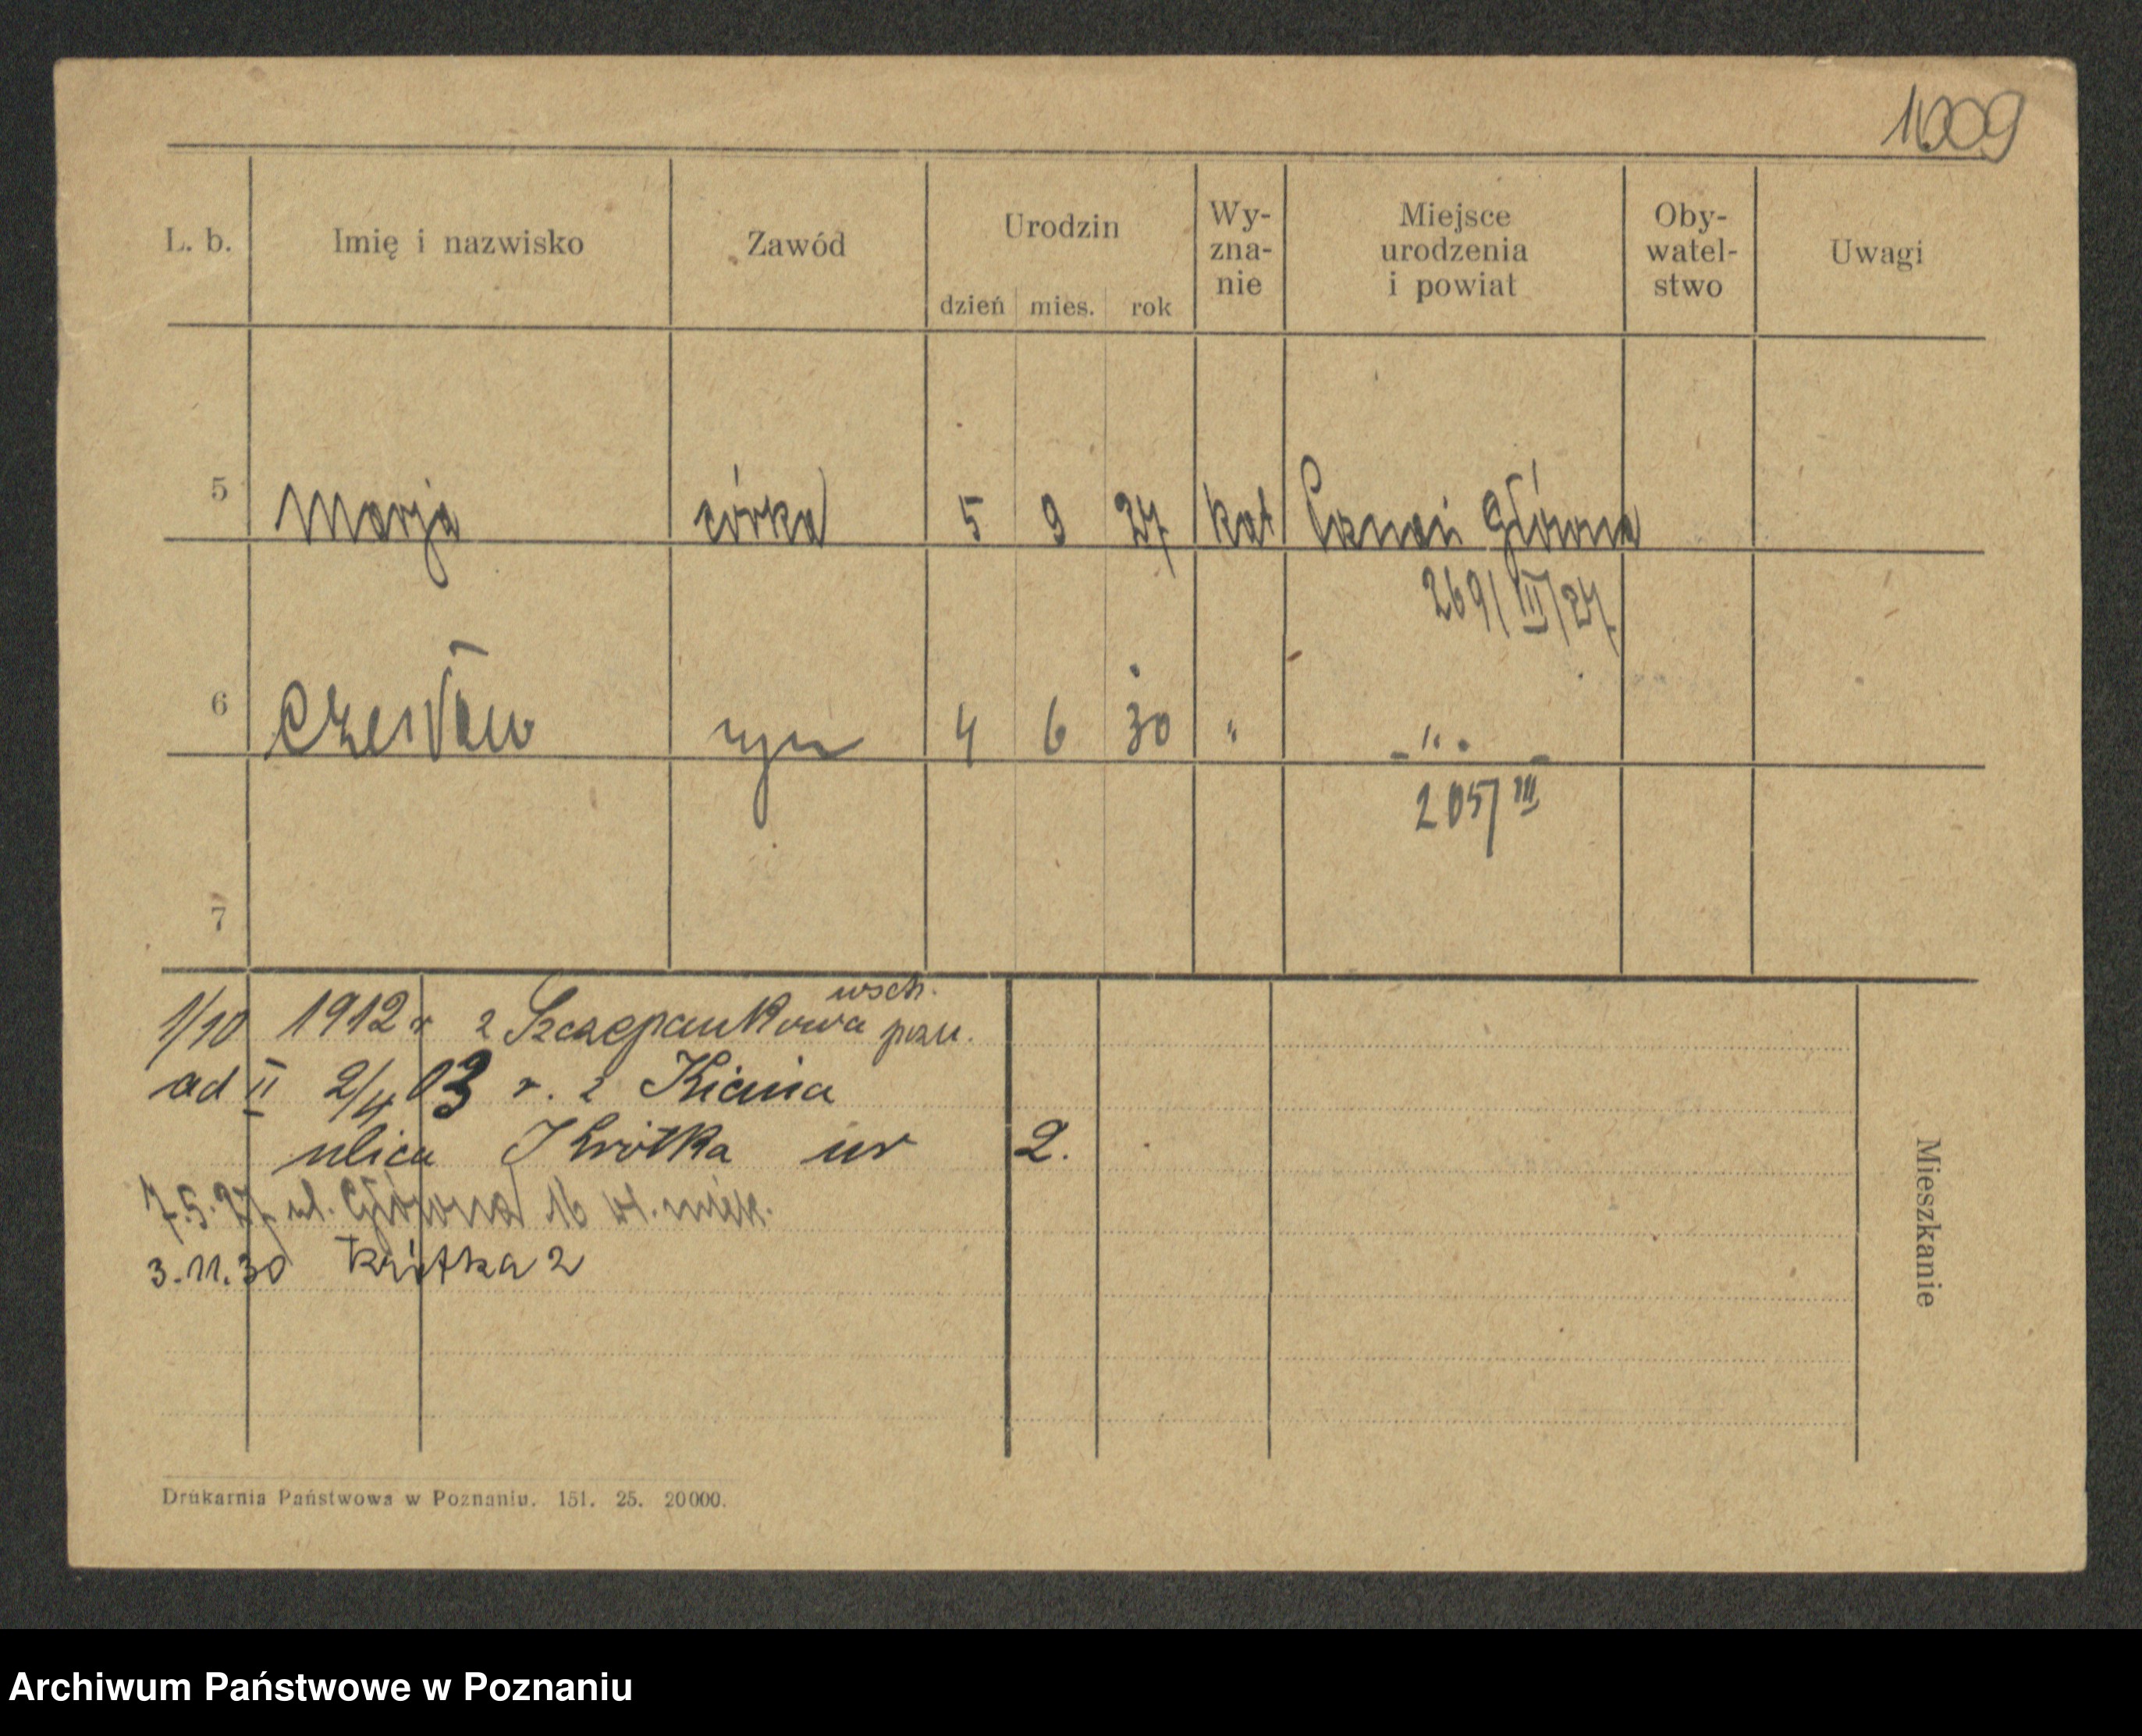 1009
L. b.
Imię i nazwisko
Zawód
Urodzin
dzień mies. rok
Wy-
zna-
nie
Miejsce
urodzenia
i powiat
Oby-
watel-
stwo
Uwagi
5 Marja córka 5 9 27 kat Poznań Główna
269/III/27
6 Czesław syn 4 6 30 " - " -
205/III
7
wsch.
1/10 1912 r z Szczepankowa pozn.
ad II 2/4 03 r. z Kicina
ulica Krótka nr 2.
7.5.27 ul. Główna 16
3.11.30 Krótka 2
Mieszkanie
Drukarnia Państwowa w Poznaniu. 151. 25. 20000.
Archiwum Państwowe w Poznaniu